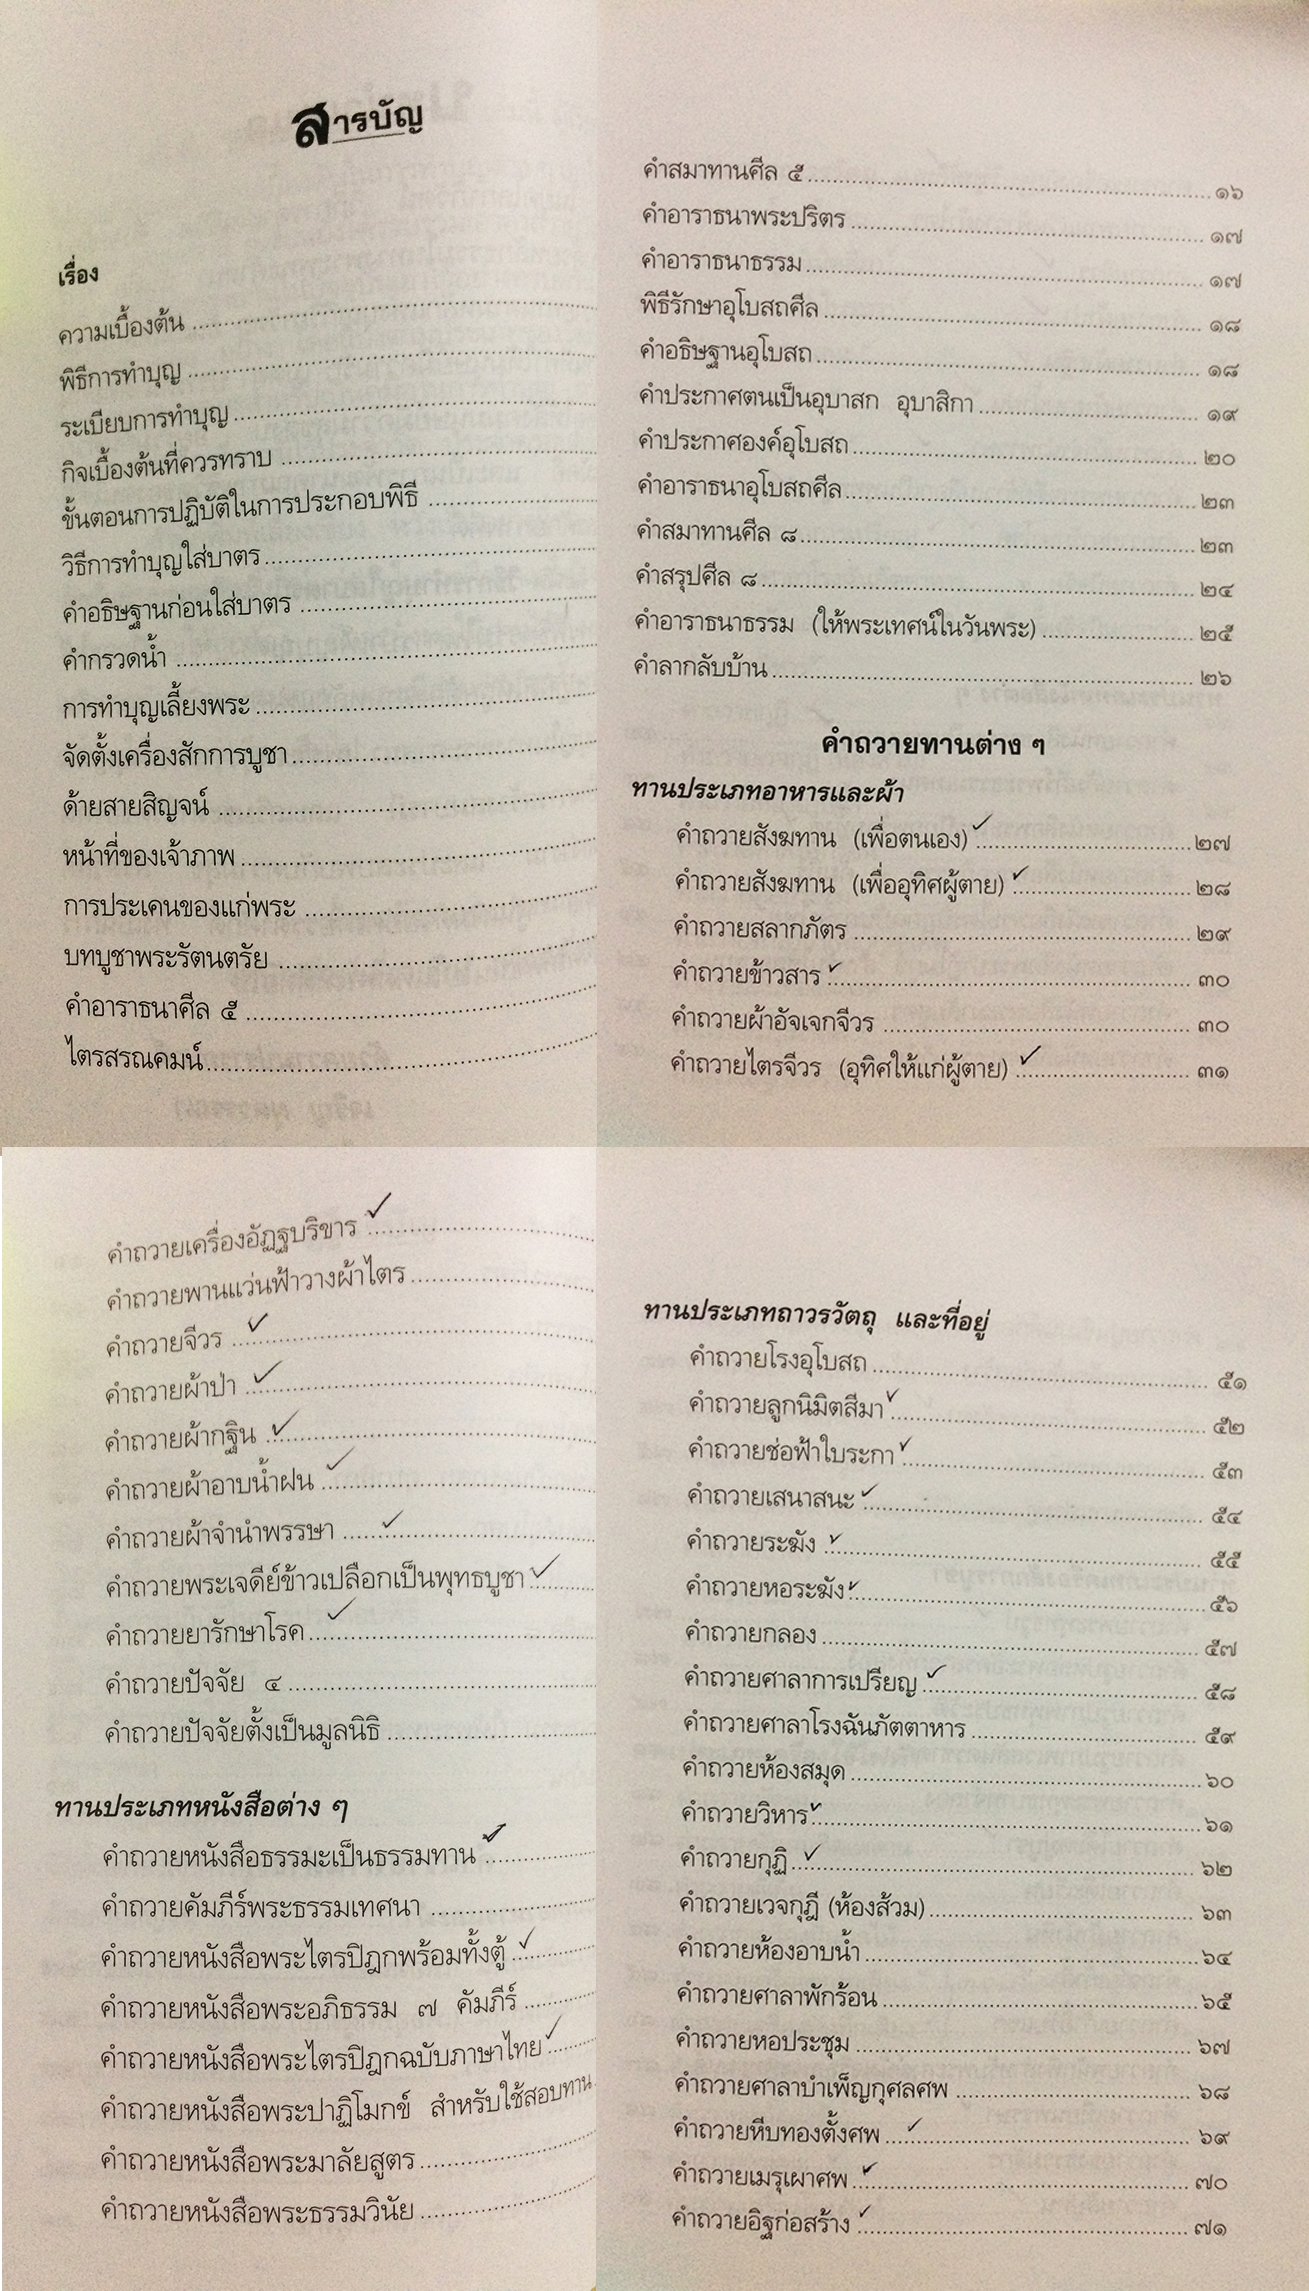 สารบัญ
เรื่อง
ความเบื้องต้น
พิธีการทำบุญ
ระเบียบการทำบุญ
กิจเบื้องต้นที่ควรทราบ
ขั้นตอนการปฏิบัติในการประกอบพิธี
วิธีการทำบุญใส่บาตร
คำอธิษฐานก่อนใส่บาตร
คำกรวดน้ำ
การทำบุญเลี้ยงพระ
จัดตั้งเครื่องสักการบูชา
ด้ายสายสิญจน์
หน้าที่ของเจ้าภาพ
การประเคนของแก่พระ
บทบูชาพระรัตนตรัย
คำอาราธนาศีล ๕
ไตรสรณคมน์
คำสมาทานศีล ๕ ๑๖
คำอาราธนาพระปริตร ๑๗
คำอาราธนาธรรม ๑๗
พิธีรักษาอุโบสถศีล ๑๘
คำอธิษฐานอุโบสถ ๑๘
คำประกาศตนเป็นอุบาสก อุบาสิกา ๑๙
คำประกาศองค์อุโบสถ ๒๐
คำอาราธนาอุโบสถศีล ๒๓
คำสมาทานศีล ๘ ๒๓
คำสรุปศีล ๘ ๒๔
คำอาราธนาธรรม (ให้พระเทศน์ในวันพระ) ๒๕
คำลากลับบ้าน ๒๖
คำถวายทานต่าง ๆ
ทานประเภทอาหารและผ้า
คำถวายสังฆทาน (เพื่อตนเอง) ๒๗
คำถวายสังฆทาน (เพื่ออุทิศผู้ตาย) ๒๘
คำถวายสลากภัตร ๒๙
คำถวายข้าวสาร ๓๐
คำถวายผ้าอัจเจกจีวร ๓๐
คำถวายไตรจีวร (อุทิศให้แก่ผู้ตาย) ๓๑
คำถวายเครื่องอัฏฐบริขาร
คำถวายพานแว่นฟ้าวางผ้าไตร
คำถวายจีวร
คำถวายผ้าป่า
คำถวายผ้ากฐิน
คำถวายผ้าอาบน้ำฝน
คำถวายผ้าจำนำพรรษา
คำถวายพระเจดีย์ข้าวเปลือกเป็นพุทธบูชา
คำถวายยารักษาโรค
คำถวายปัจจัย ๔
คำถวายปัจจัยตั้งเป็นมูลนิธิ
ทานประเภทหนังสือต่าง ๆ
คำถวายหนังสือธรรมะเป็นธรรมทาน
คำถวายคัมภีร์พระธรรมเทศนา
คำถวายหนังสือพระไตรปิฎกพร้อมทั้งตู้
คำถวายหนังสือพระอภิธรรม ๗ คัมภีร์
คำถวายหนังสือพระไตรปิฎกฉบับภาษาไทย
คำถวายหนังสือพระปาฏิโมกข์ สำหรับใช้สอบทาน
คำถวายหนังสือพระมาลัยสูตร
คำถวายหนังสือพระธรรมวินัย
ทานประเภทถาวรวัตถุ และที่อยู่
คำถวายโรงอุโบสถ ๕๑
คำถวายลูกนิมิตสีมา ๕๒
คำถวายช่อฟ้าใบระกา ๕๓
คำถวายเสนาสนะ ๕๔
คำถวายระฆัง ๕๕
คำถวายหอระฆัง ๕๖
คำถวายกลอง ๕๗
คำถวายศาลาการเปรียญ ๕๘
คำถวายศาลาโรงฉันภัตตาหาร ๕๙
คำถวายห้องสมุด ๖๐
คำถวายวิหาร ๖๑
คำถวายกุฏิ ๖๒
คำถวายเวจกุฎี (ห้องส้วม) ๖๓
คำถวายห้องอาบน้ำ ๖๔
คำถวายศาลาพักร้อน ๖๕
คำถวายหอประชุม ๖๗
คำถวายศาลาบำเพ็ญกุศลศพ ๖๘
คำถวายหีบทองตั้งศพ ๖๙
คำถวายเมรุเผาศพ ๗๐
คำถวายอิฐก่อสร้าง ๗๑